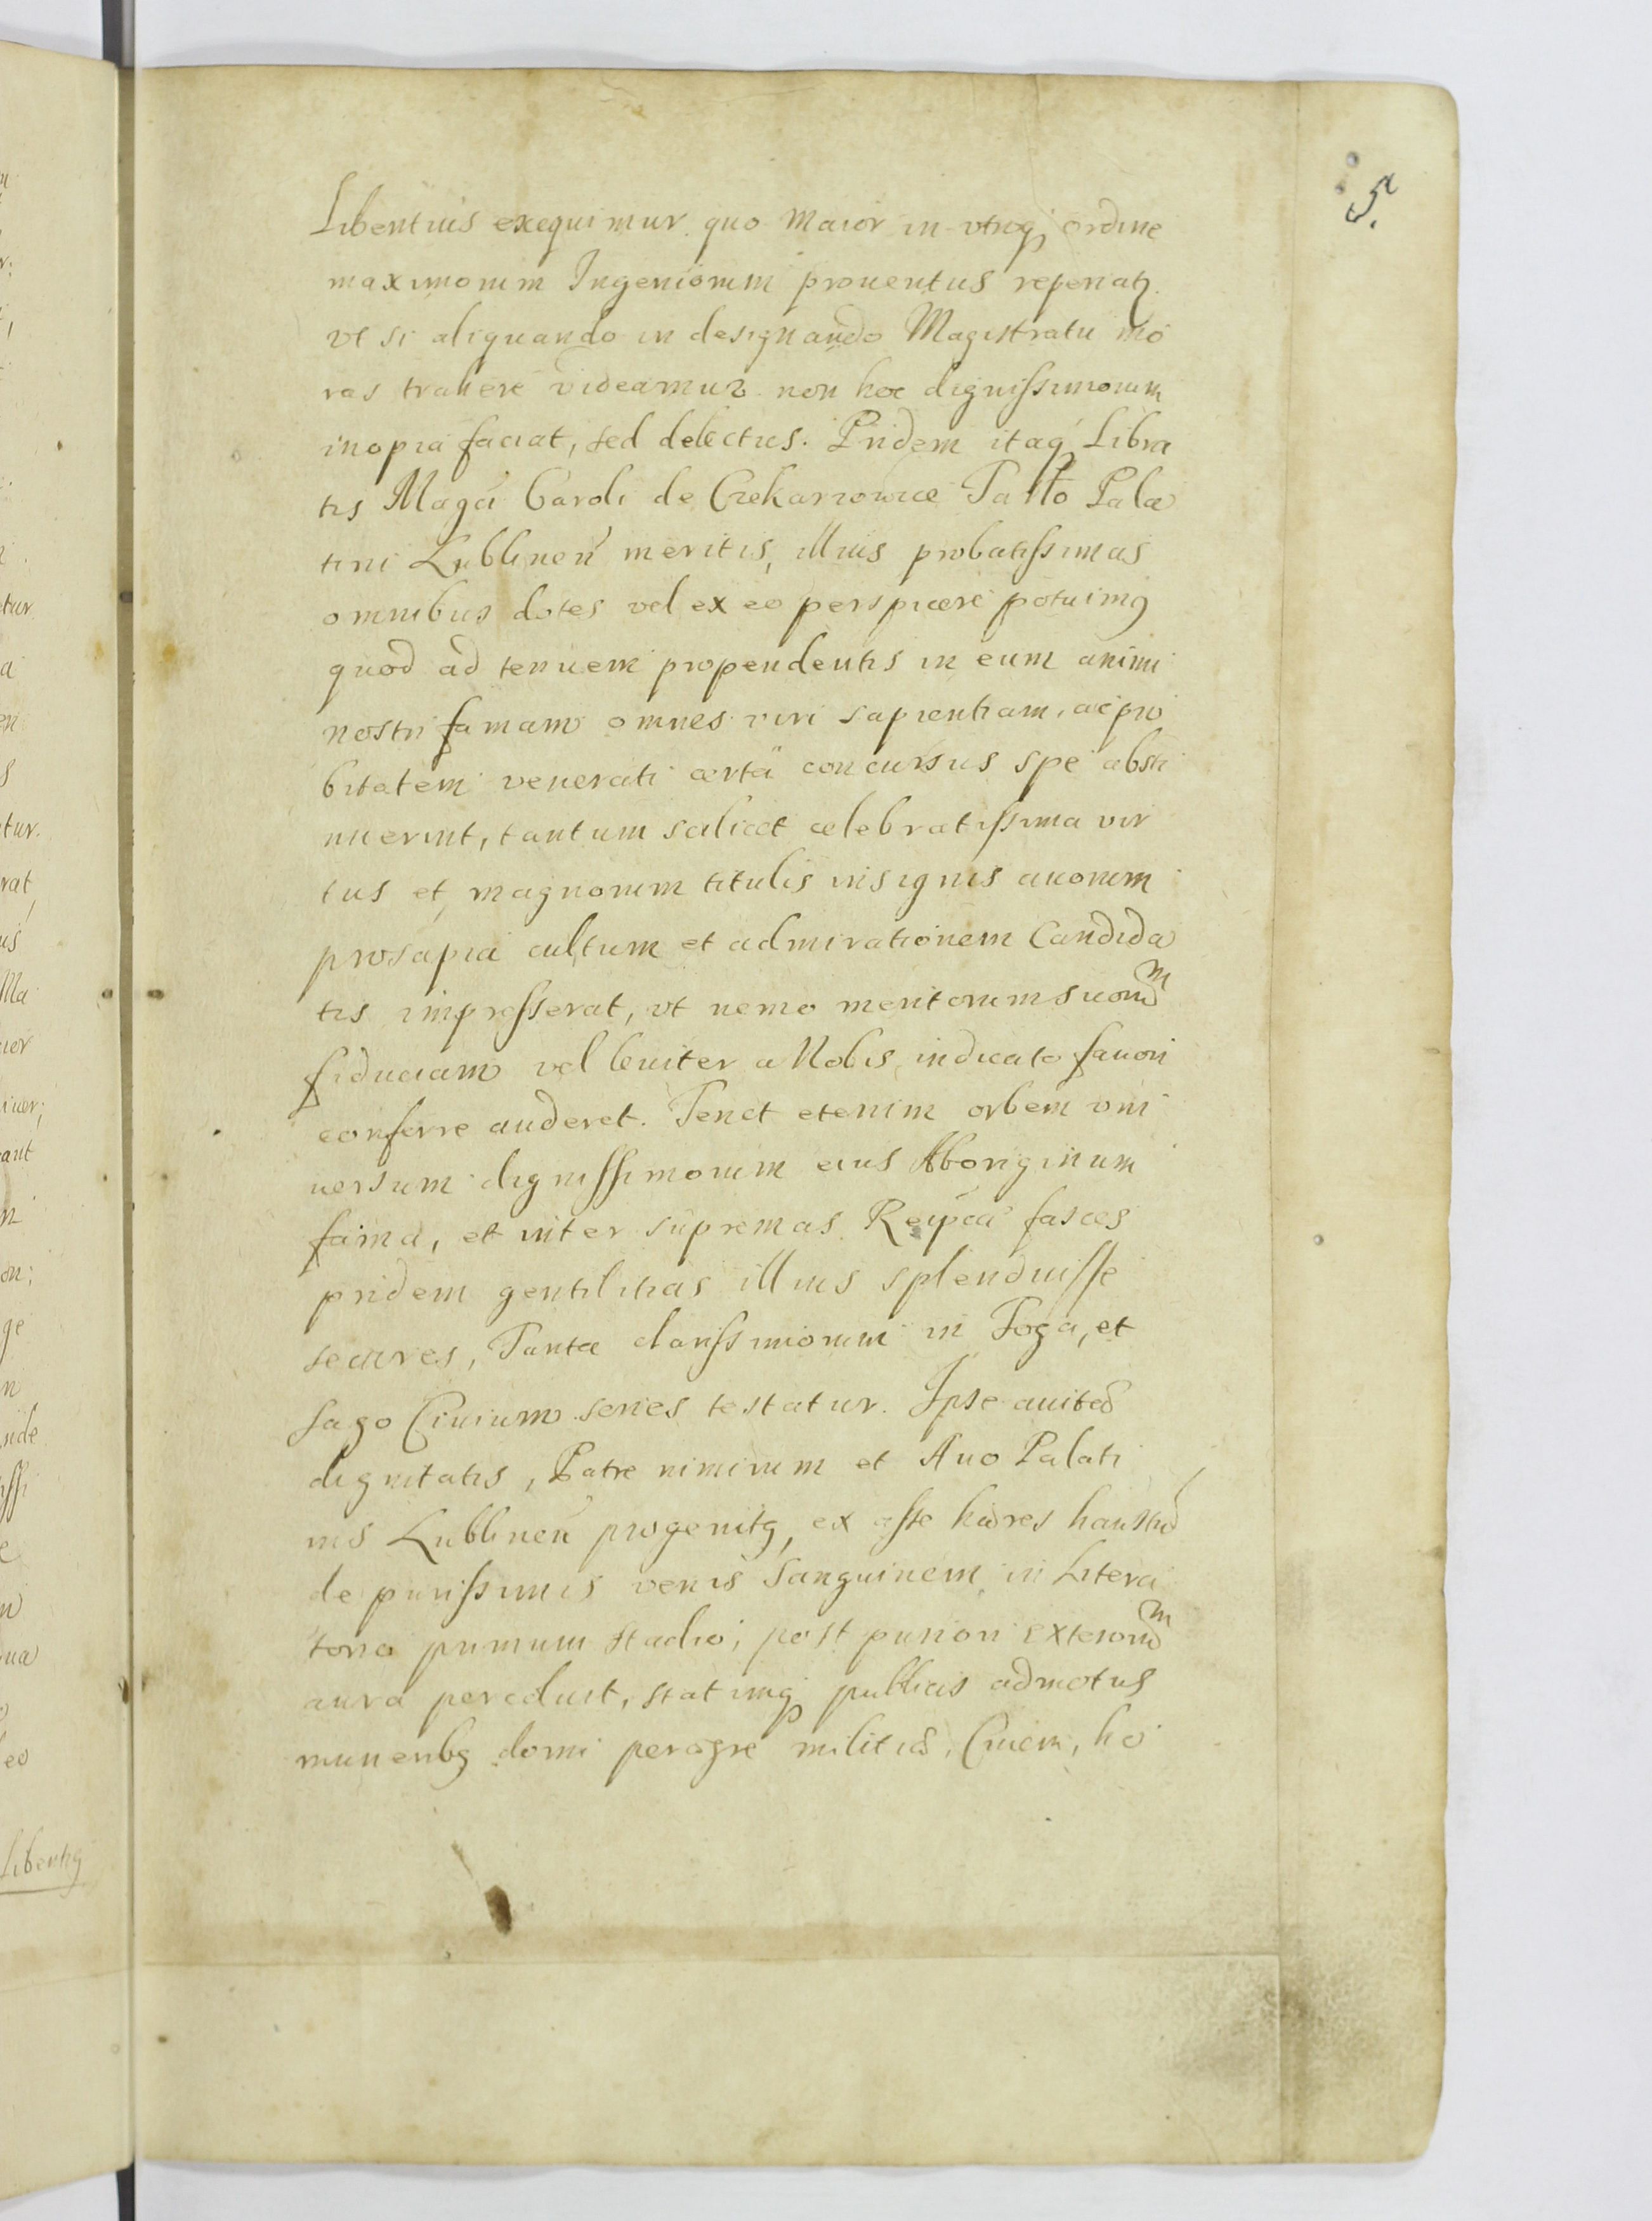 5.
Libentius exequimur quo Maior in vtroq; ordine
maximorum Ingeniorum prouentus reperiatr.
vt si aliquando in designando Magistratu mo
ras trahere videamur non hoc dignissimorum
inopia faciat, sed delectus. Pridem itaq; Libra
tis Magci Caroli de Czekarzowice Tarło Pala
tini Lublinen meritis, illius probatissimas
omnibus dotes vel ex eo perspicere potuimq
quod ad tenuem propendentis in eum animi
nostri famam omnes viri sapientiam, ac pro
bitatem venerati certa concursus spe absti
nuerint, tantum scilicet celebratissima vir
tus et magnorum titulis insignis auorum
prosapia cultum et admirationem Candida
tis impresserat, vt nemo meritorum suorum
fiduciam vel leuiter a Nobis indicato fauori
conferre auderet. Tenet etenim orbem vni
uersum dignissimorum eius Aboriginum
fama, et inter supremas Reipcae fasces
pridem gentilitias illius splenduisse
secures, Tanta clarissimorum in Toga, et
sago Ciuium series testatur. Ipse auitae
dignitatis, Patre nimirum et Auo Palati
nis Lublinen progenitq, ex asse haeres haustum
de purissimis venis Sanguinem in Litera
torio primum stadio, post puriori exterorum
aura percoluit, statimq; publicis admotus
muneribq domi peragre militiae, Ciuem, ho